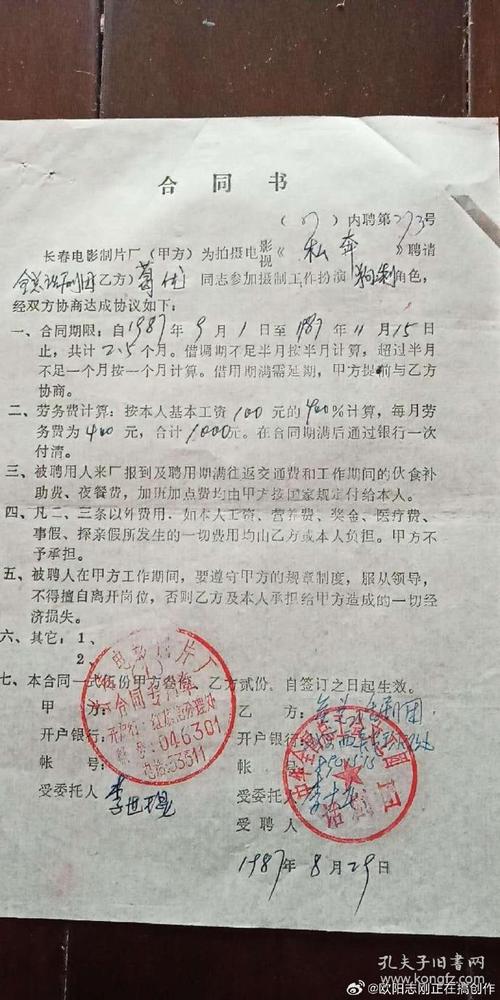 合同书
(87)内聘第273号
长春电影制片厂(甲方)为拍摄电影视《私奔》聘请
全总话剧团(乙方)葛优同志参加摄制工作扮演 角色,
经双方协商达成协议如下:
一、合同期限:自1987年9月1日至1987年11月15日
止,共计2.5个月。借调期不足半月按半月计算,超过半月
不足一个月按一个月计算。借用期满需延期,甲方提前与乙方
协商。
二、劳务费计算:按本人基本工资100元的400%计算,每月劳
务费为400元,合计1000元。在合同期满后通过银行一次
付清。
三、被聘用人来厂报到及聘用期满往返交通费和工作期间的伙食补
助费、夜餐费,加班加点费均由甲方按国家规定付给本人。
四、凡二、三条以外费用,如本人工资、营养费、奖金、医疗费、
事假、探亲假所发生的一切费用均由乙方或本人负担。甲方不
予承担。
五、被聘人在甲方工作期间,要遵守甲方的规章制度,服从领导,
不得擅自离开岗位,否则乙方及本人承担给甲方造成的一切经
济损失。
六、其它:1、
2、
七、本合同一式伍份甲方叁份,乙方贰份,自签订之日起生效。
甲方: 乙方:全总话剧团
开户银行: 开户银行:
帐号: 帐号:
受委托人 受委托人
受聘人
长春电影制片厂
合同专用章
开户行:红旗街分理处
帐号:046301
电话:53311
话剧团
1987年8月29日
孔夫子旧书网
www.kongfz.com
@欧阳志刚正在搞创作